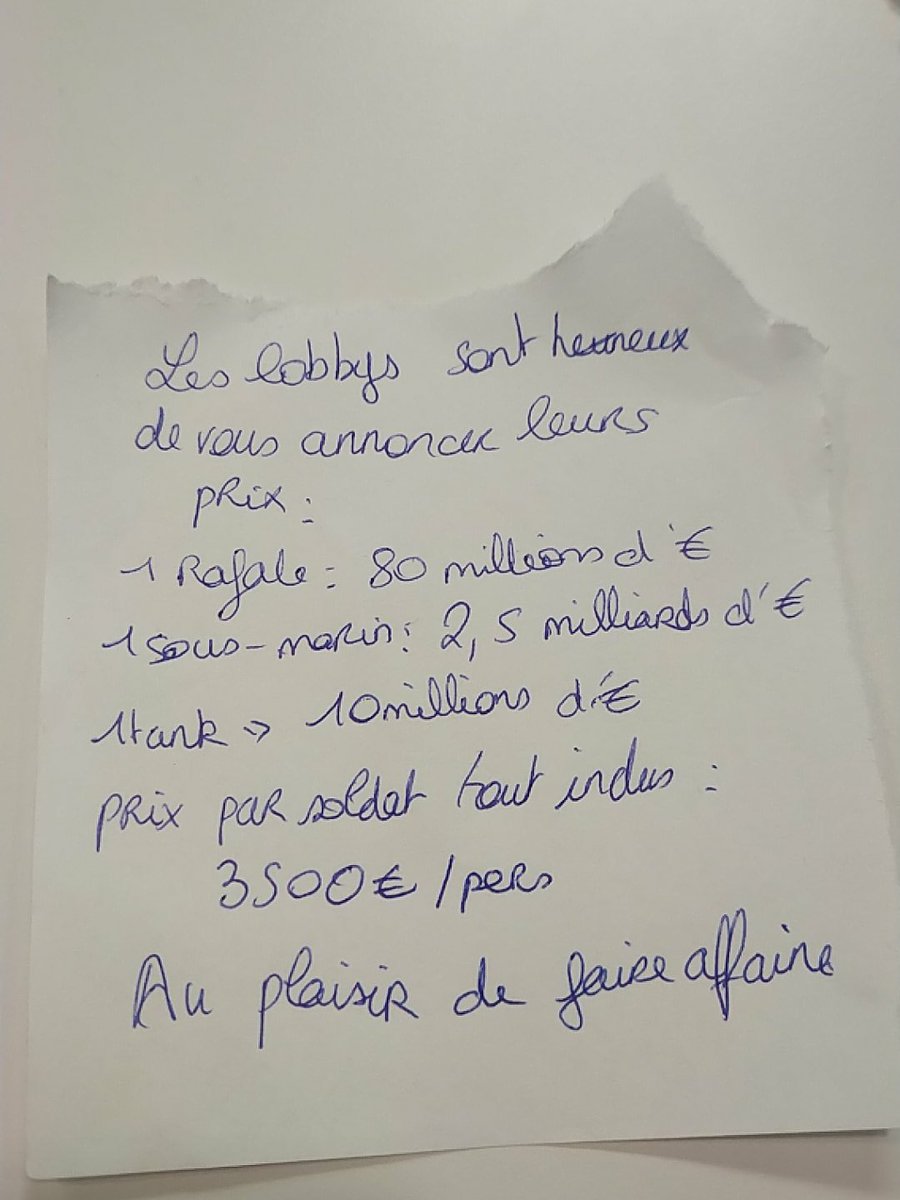 Les lobbys sont heureux
de vous annoncer leurs
prix :
1 Rafale : 80 millions d'€
1 sous-marin : 2,5 milliards d'€
1 tank => 10 millions d'€
prix par soldat tout inclus :
3500€ / pers
Au plaisir de faire affaire